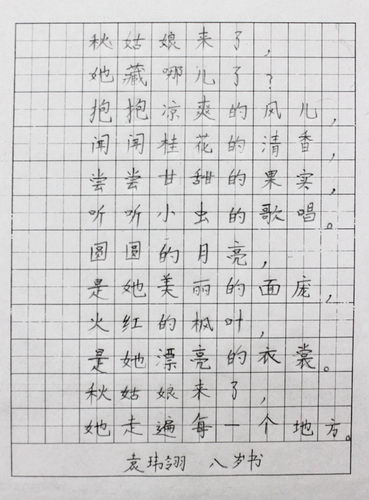 秋姑娘来了，
她藏哪儿了？
抱抱凉爽的风儿，
闻闻桂花的清香，
尝尝甘甜的果实，
听听小虫的歌唱。
圆圆的月亮，
是她美丽的面庞，
火红的枫叶，
是她漂亮的衣裳。
秋姑娘来了，
她走遍每一个地方。
袁玮翎 八岁书